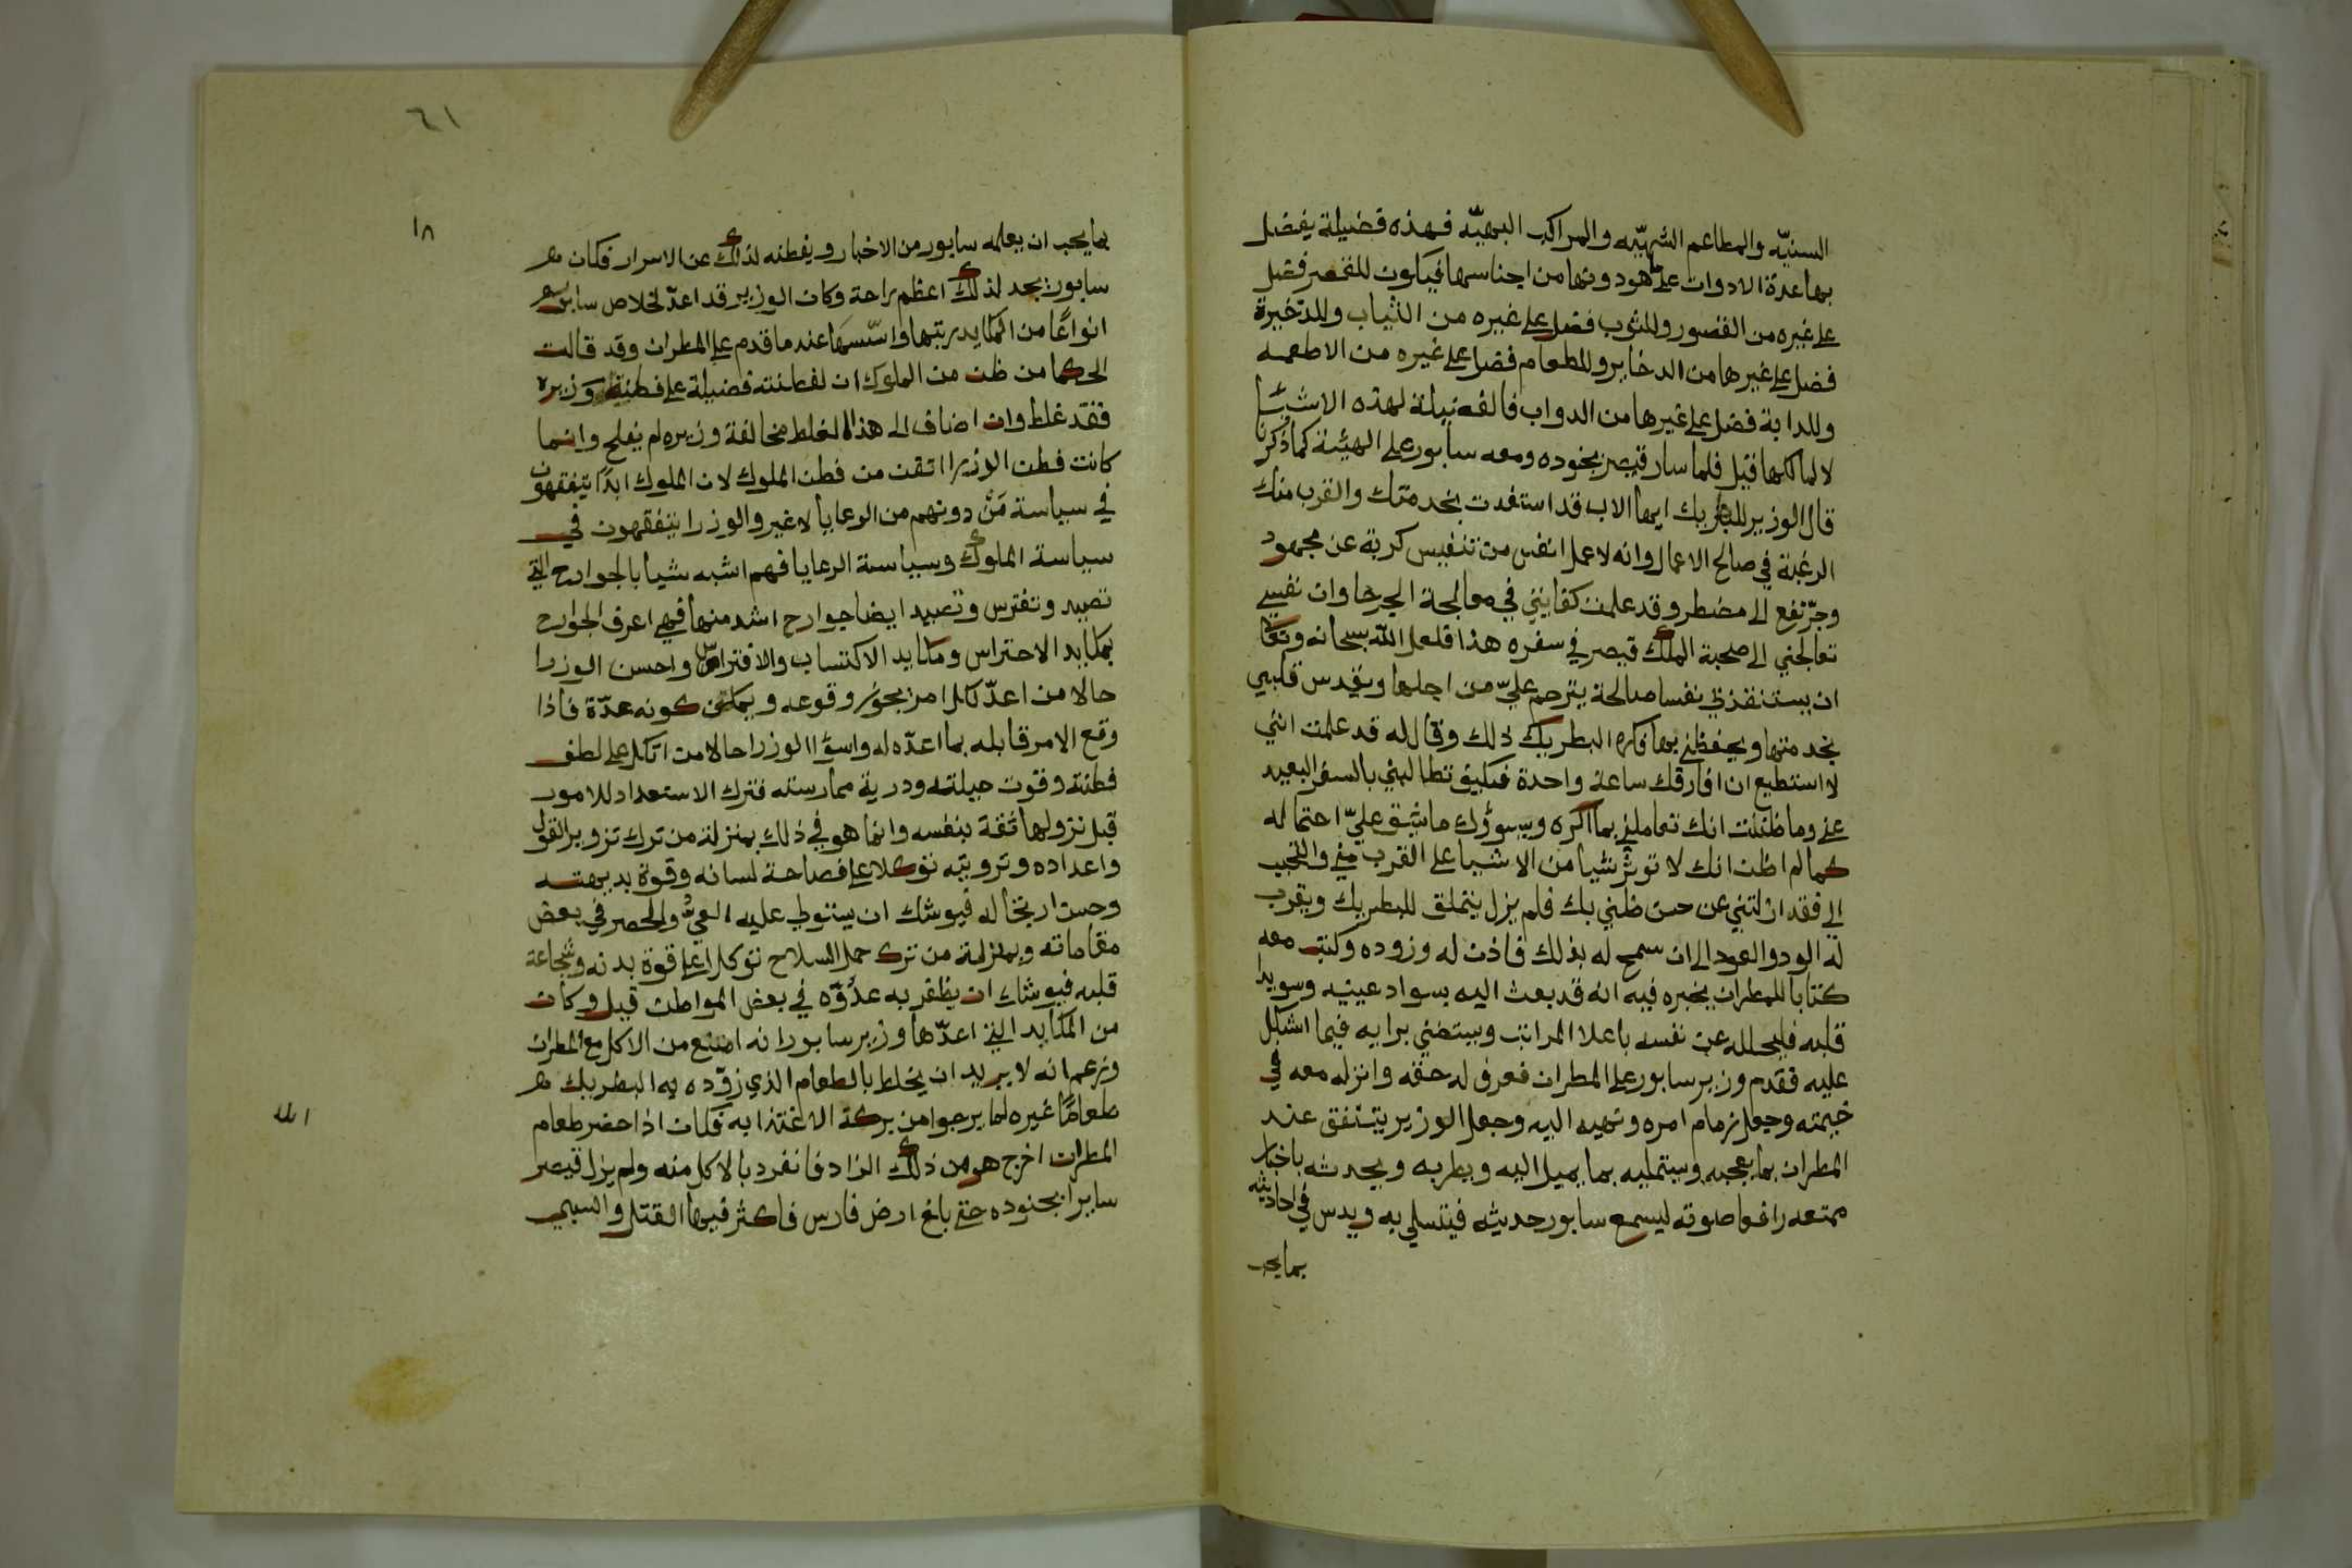 السنيّه والمطاعم الشهيّه والمراكب البهيّه فهذه فضيلة يفضل
بها عدة الادوات على ما هو دونها من اجناسها فيكون للقصر فضل
على غيره من القصور وللثوب فضل على غيره من الثياب وللدخيرة
فضل على غيرها من الدخاير وللطعام فضل على غيره من الاطعمه
وللدابة فضل على غيرها من الدواب فالفضيلة لهذه الاشيا
لا لمالكها قيل فلما سار قيصر بجنوده ومعه سابور على الهيئة كما ذكرنا
قال الوزير للبطريك ايها الاب قد استفدت بخدمتك والقرب منك
الرغبة في صالح الاعمال وانه لا عمل انفس من تنفيس كربة عن مجهود
وجرّ نفع الى مضطر وقد علمت كفايتي في معالجة الجرحا وان نفسي
تعالجني الى صحبة الملك قيصر في سفره هذا فلعل الله سبحانه وتعالى
ان يستنقذ بي نفسا صالحة يترحم عليّ من اجلها ويقدس قلبي
بخدمتها ويحفظني بها فكره البطريك ذلك وقال له قد علمت انني
لا استطيع ان افارقك ساعة واحدة فكيف تطالبني بالسفر البعيد
عني وما ظننت انك تعاملني بما اكره ويسوؤك ما يشق عليّ احتماله
كما لم اظن انك لا توثر شيا من الاشيا على القرب مني والتحبب
الي فقد ازلتني عن حسن ظني بك فلم يزل يتملق للبطريك ويقرب
له الود والعود الى ان سمح له بذلك فاذن له وزوده وكتب معه
كتابا للمطران يخبره فيه انه قد بعث اليه بسواد عينيه وسويدا
قلبه فليحلله عن نفسه باعلا المراتب ويستضي برايه فيما اشكل
عليه فقدم وزير سابور على المطران فعرف له حقه وانزله معه في
خيمته وجعل زمام امره ونهيه اليه وجعل الوزير يتنفق عند
المطران بما يعجبه ويستمليه بما يميل اليه ويطربه ويحدثه باخبار
ممتعه رافعا صوته ليسمع سابور حديثه فيتسلي به ويدس في احاديثه
بما يجب
٦١
١٨
بما يجب ان يعلمه سابور من الاخبار ويفطنه لذلك عن الاسرار فكان
سابور يجد لذلك اعظم راحة وكان الوزير قد اعدّ لخلاص سابور
انواعًا من المكايد رتبها واسّسها عند ما قدم على المطران وقد قالت
الحكما من ظن من الملوك ان لفطنته فضيلة على فطنة وزيره
فقد غلط وان اضاف الى هذا الغلط مخالفة وزيره لم يفلح وانما
كانت فطن الوزرا اتقن من فطن الملوك لان الملوك ابدًا يتفقهون
في سياسة مَن دونهم من الرعايا لا غير والوزرا يتفقهون في
سياسة الملوك وسياسة الرعايا فهم اشبه شيا بالجوارح التي
تصيد وتفترس وتصيد ايضا جوارح اشد منها فهي اعرف الجوارح
بمكايد الاحتراس ومكايد الاكتساب والافتراس واحسن الوزرا
حالا من اعدّ لكل امر يجوز وقوعه ويمكن كونه عدّة فاذا
وقع الامر قابله بما اعدّه له واسوٓا الوزرا حالا من اتكل على لطف
فطنته وقوت حيلته ودرية ممارسته فترك الاستعداد للامور
قبل نزولها ثقة بنفسه وانما هو في ذلك بمنزلة من ترك تزوير القول
واعداده وترويته توكلا على فصاحة لسانه وقوة بديهته
وحسن ارتجاله فيوشك ان يستولي عليه العي والحصر في بعض
مقاماته وبمنزلة من ترك حمل السلاح توكلا على قوة بدنه وشجاعة
قلبه فيوشك ان يظفر به عدوّه في بعض المواطن قيل وكان
من المكايد التي اعدّها وزير سابور انه امتنع من الاكل مع المطران
وزعم انه لا يريد ان يخلط بالطعام الذي زوّده به البطريك
طعامًا غيره لما يرجوا من بركة الاغتذا به فكان اذا حضر طعام
المطران اخرج هو من ذلك الزاد فانفرد بالاكل منه ولم يزل قيصر
سايرا بجنوده حتى بلغ ارض فارس فاكثر فيها القتل والسبي